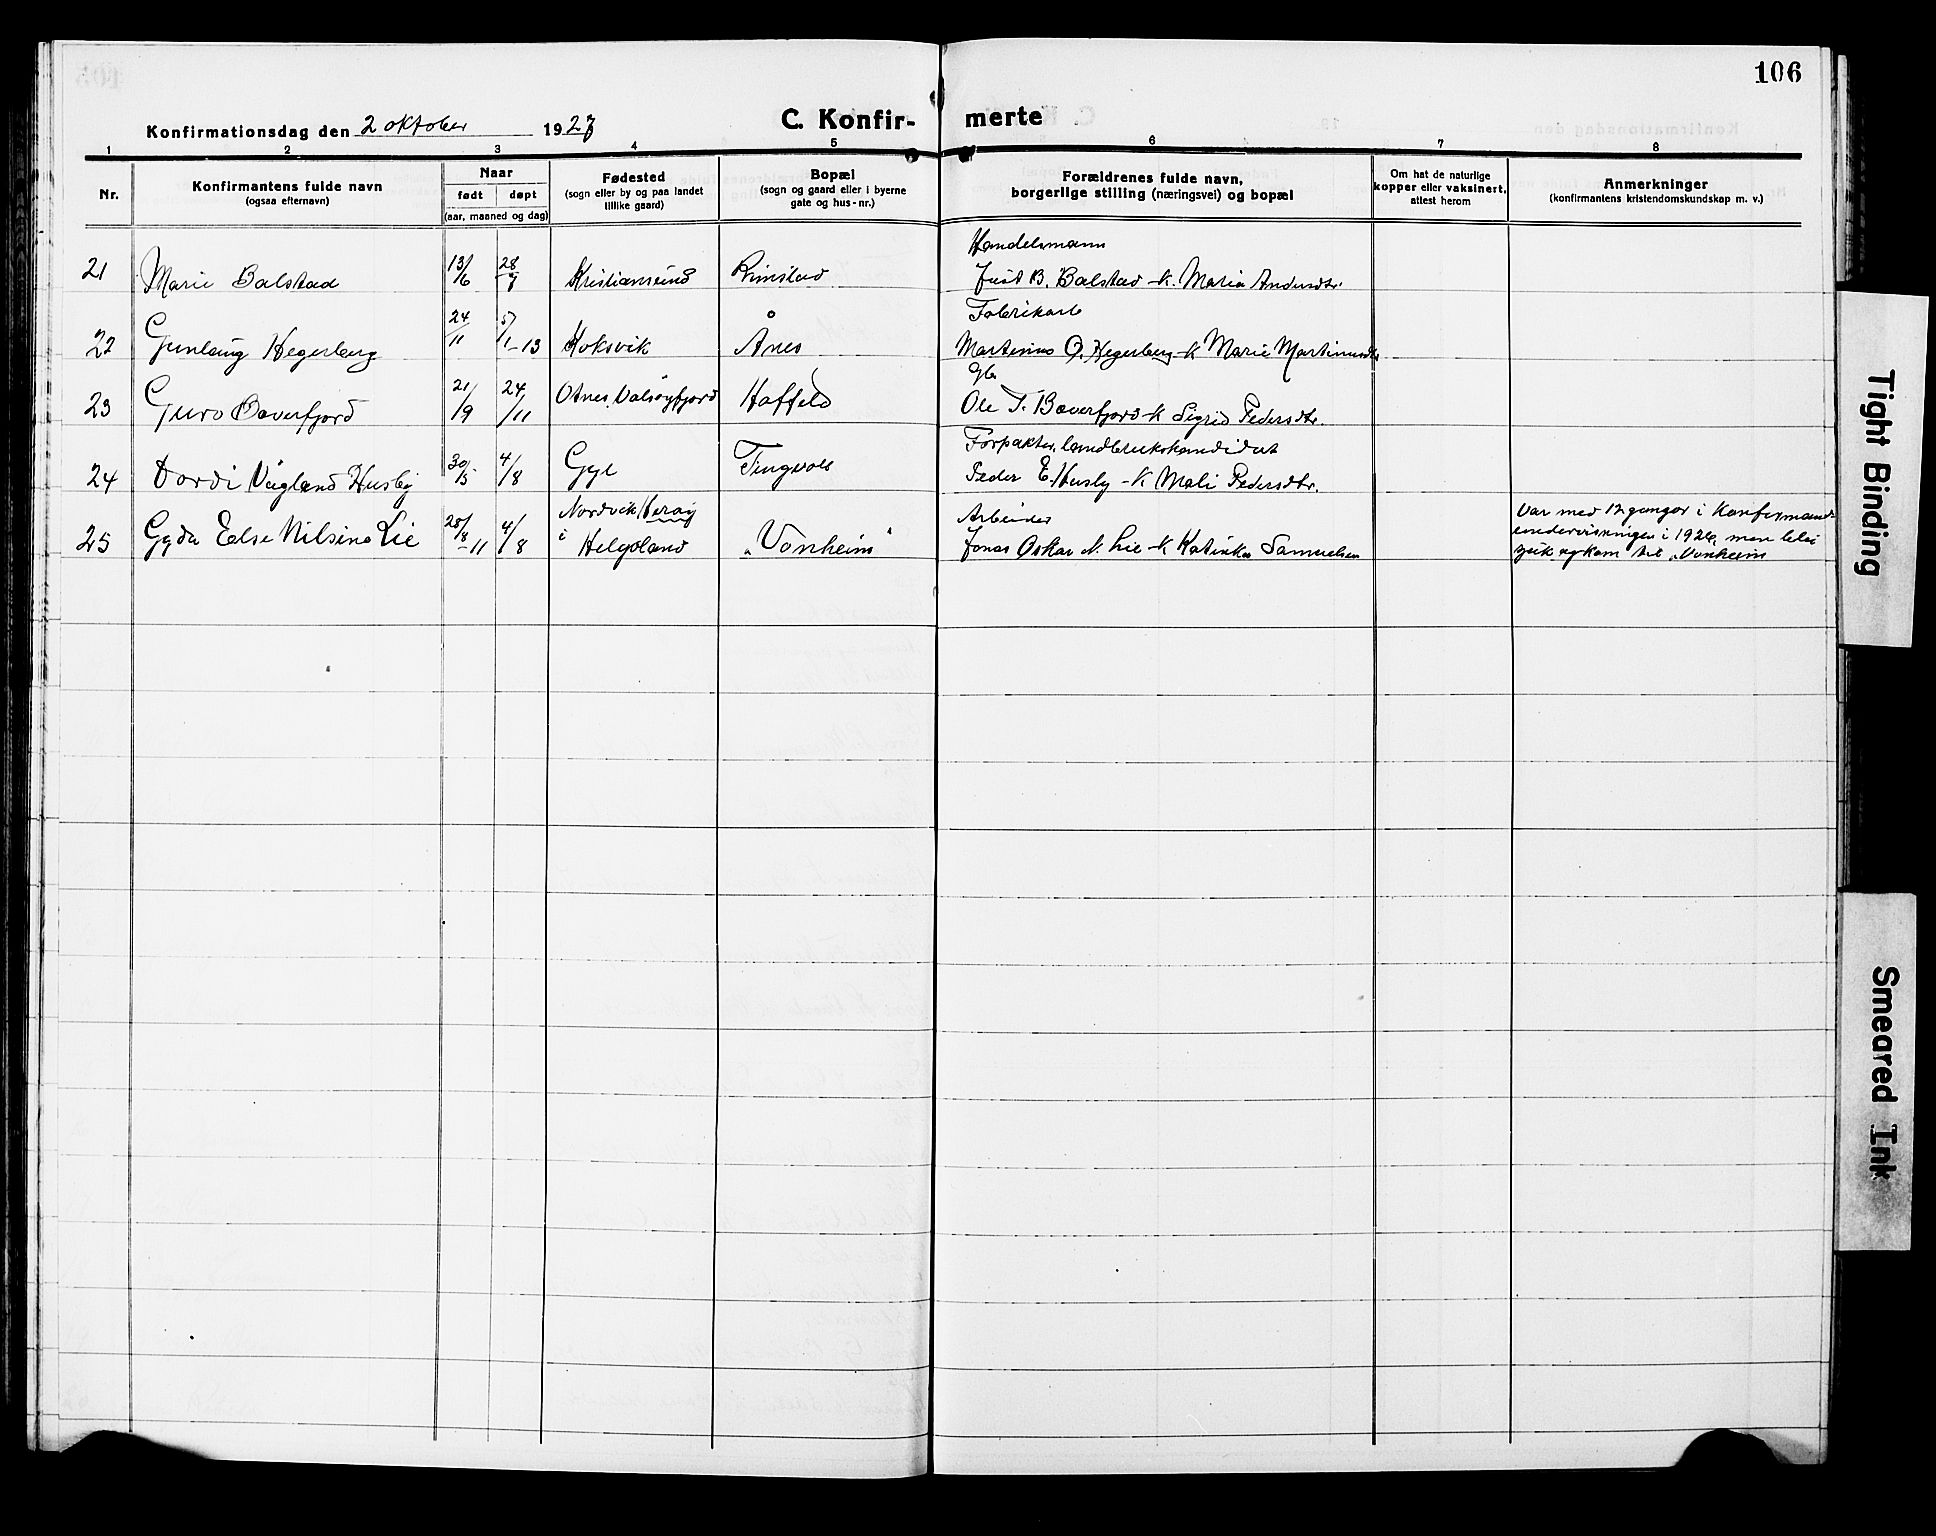 106
Konfirmationsdag den 2 oktober 1927
C. Konfir- merte
1 2 3 4 5 6 7 8
Nr.
Konfirmantens fulde navn
(ogsaa efternavn)
Naar
født døpt
(aar, maaned og dag)
Fødested
(sogn eller by og paa landet
tillike gaard)
Bopæl
(sogn og gaard eller i byerne
gate og hus-nr.)
Forældrenes fulde navn,
borgerlige stilling (næringsvei) og bopæl
Om hat de naturlige
kopper eller vaksinert,
attest herom
Anmerkninger
(konfirmantens kristendomskundskap m. v.)
Handelsmann
21 Marie Balstad 13/6 28/7 Kristiansund Rimstad Just B. Balstad - K. Maria Andersdtr.
Fabrikarb
22 Gunlaug Hegerberg 24/11 5/1-13 Hoksvik Ånes Martinus O. Hegerberg - K Marie Martinusdtr
Gb
23 Guro Bæverfjord 21/9 24/11 Otnes, Valsøyfjord Haffeld Ole T. Bæverfjord - K Sigrid Pedersdtr.
Forpakter, landbrukskandidat
24 Dordi Vågland Husby 30/5 4/8 Gyl Tingvoll Peder E. Husby - K Mali Pedersdtr.
25 Gyda Else Nilsine Lie 28/8-11 4/8 Nordvik Herøy
i Helgeland "Vonheim"
Arbeider
Jonas Oskar N. Lie - K Katinka Samuelsen
Var med 12 ganger i Konfirmand-
undervisningen i 1926, men blei
sjuk og kom til "Vonheim
Tight Binding
Smeared Ink